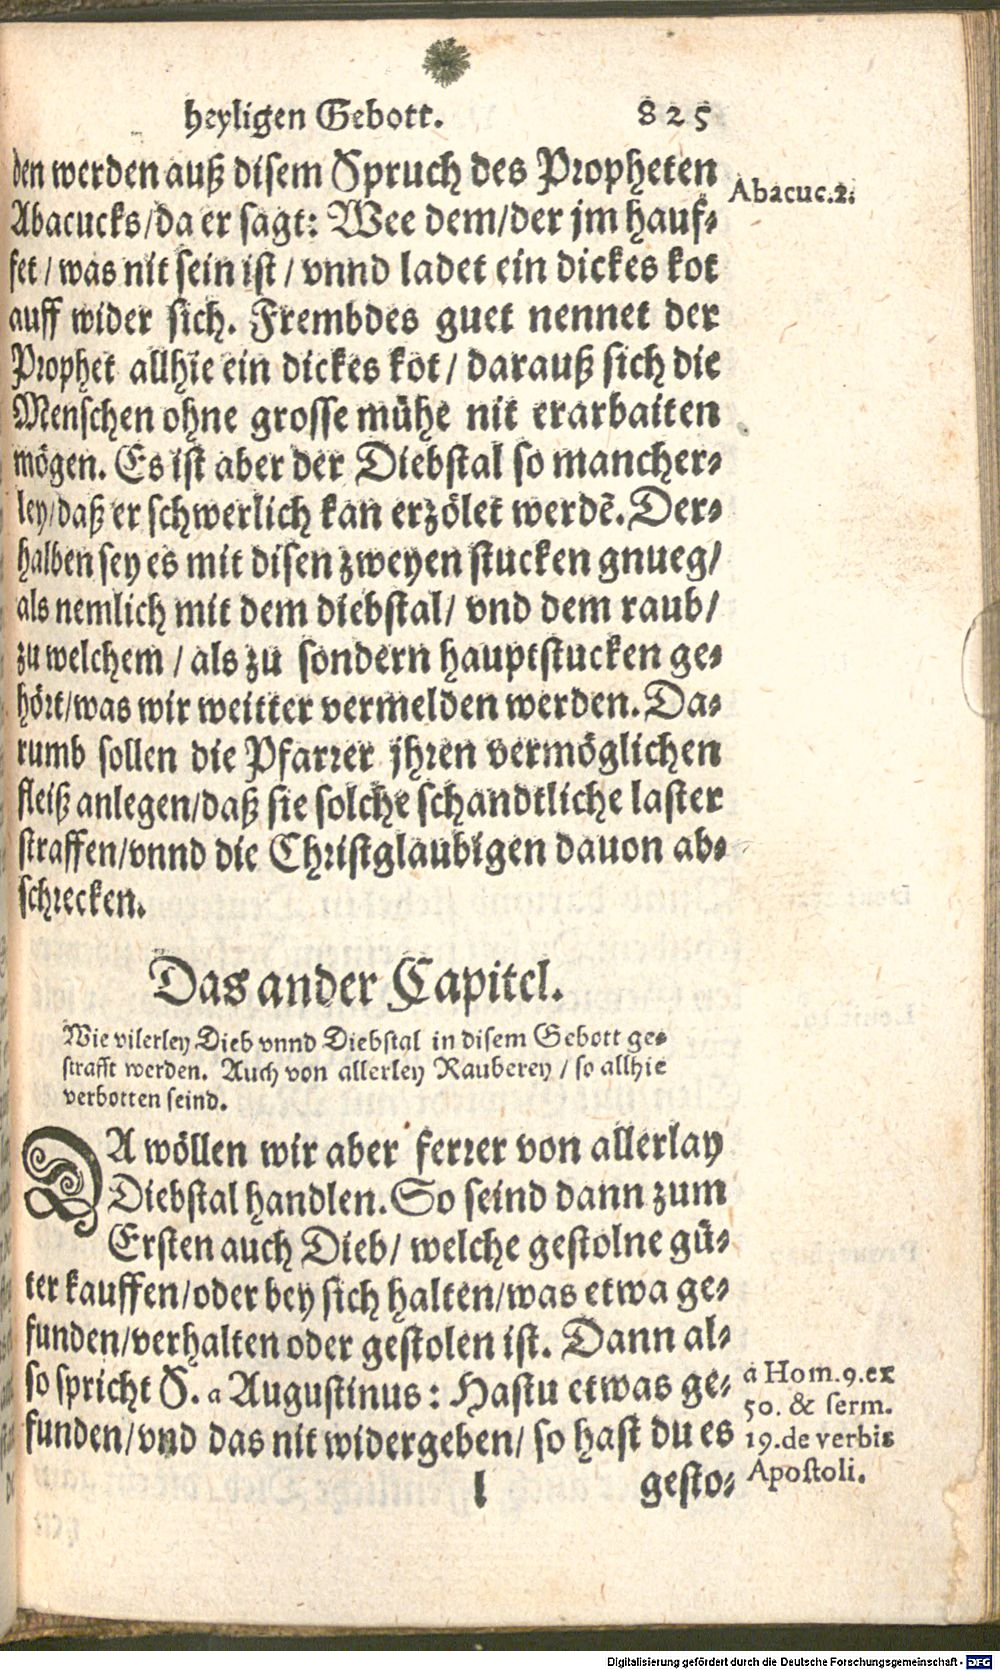 heyligen Gebott. 825
den werden auß disem Spruch des Propheten
Abacuc.2.
Abacucks/da er sagt: Wee dem/der jm hauf-
fet/was nit sein ist/vnnd ladet ein dickes kot
auff wider sich. Frembdes guet nennet der
Prophet allhie ein dickes kot/darauß sich die
Menschen ohne grosse mühe nit erarbaiten
mögen. Es ist aber der Diebstal so mancher-
ley/daß er schwerlich kan erzölet werdē. Der-
halben sey es mit disen zweyen stucken gnueg/
als nemlich mit dem diebstal/vnd dem raub/
zu welchem/als zu sondern hauptstucken ge-
hört/was wir weitter vermelden werden. Da-
rumb sollen die Pfarrer jhren vermöglichen
fleiß anlegen/daß sie solche schandtliche laster
straffen/vnnd die Christglaubigen dauon ab-
schrecken.
Das ander Capitel.
Wie vilerley Dieb vnnd Diebstal in disem Gebott ge-
strafft werden. Auch von allerley Rauberey/so allhie
verbotten seind.
DA wöllen wir aber ferrer von allerlay
Diebstal handlen. So seind dann zum
Ersten auch Dieb/welche gestolne gü-
ter kauffen/oder bey sich halten/was etwa ge-
funden/verhalten oder gestolen ist. Dann al-
so spricht S. a Augustinus: Hastu etwas ge-
funden/vnd das nit widergeben/so hast du es
a Hom.9.ex
50. & serm.
19.de verbis
Apostoli.
l gesto-
Digitalisierung gefördert durch die Deutsche Forschungsgemeinschaft - DFG